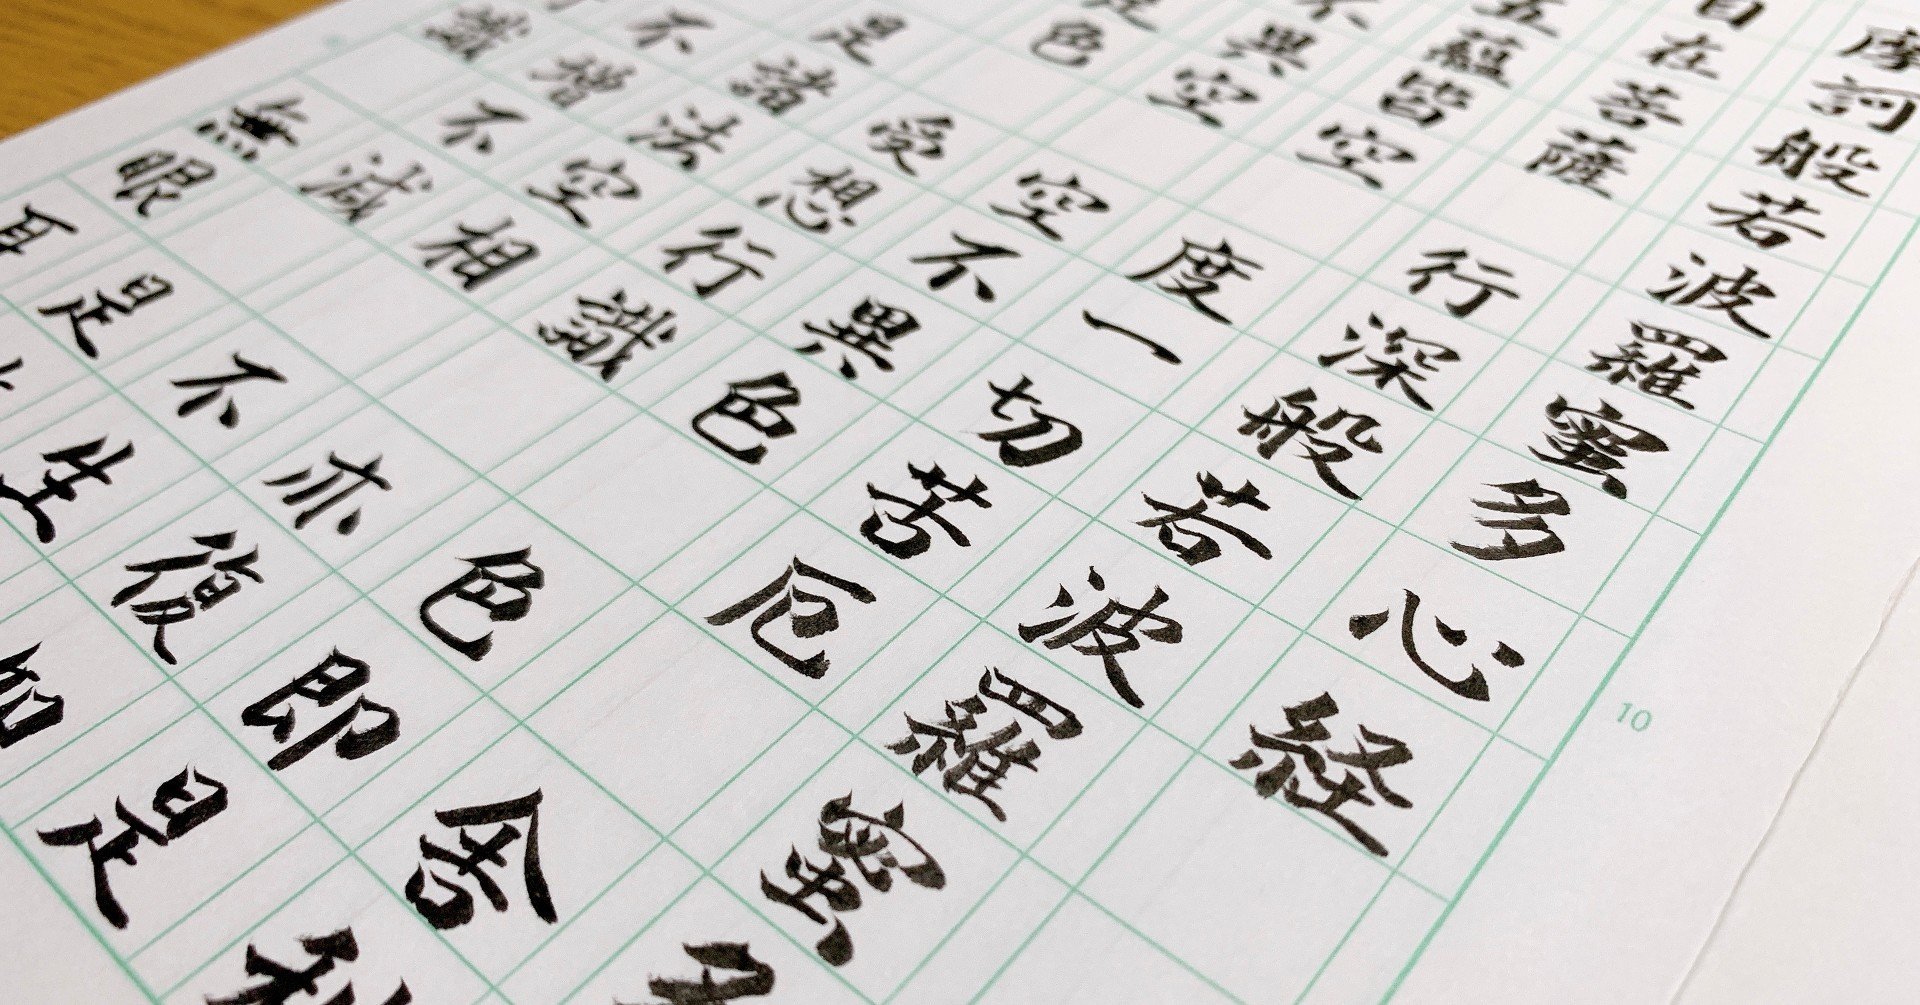 摩訶般若波羅蜜多心経
自在菩薩　行深般若波羅蜜多
五蘊皆空　度一切苦厄　舎利
不異空　空不異色　色即是
是色　受想行識　亦復如
是諸法空相　不生
不増不減　是
識　無眼耳
10